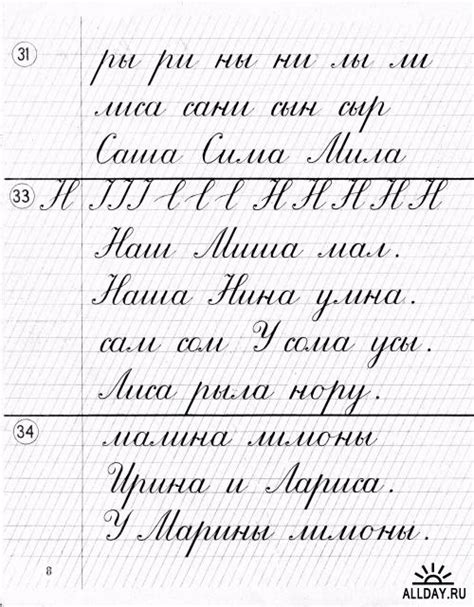 31 ры ри ны ни лы ли
лиса сани сын сыр
Саша Сима Мила
33 Н Н Н Н Н Н
Наш Миша мал.
Наша Нина умна.
сам сом У сома усы.
Лиса рыла нору.
34 малина лимоны
Ирина и Лариса.
У Марины лимоны.
8
ALLDAY.RU